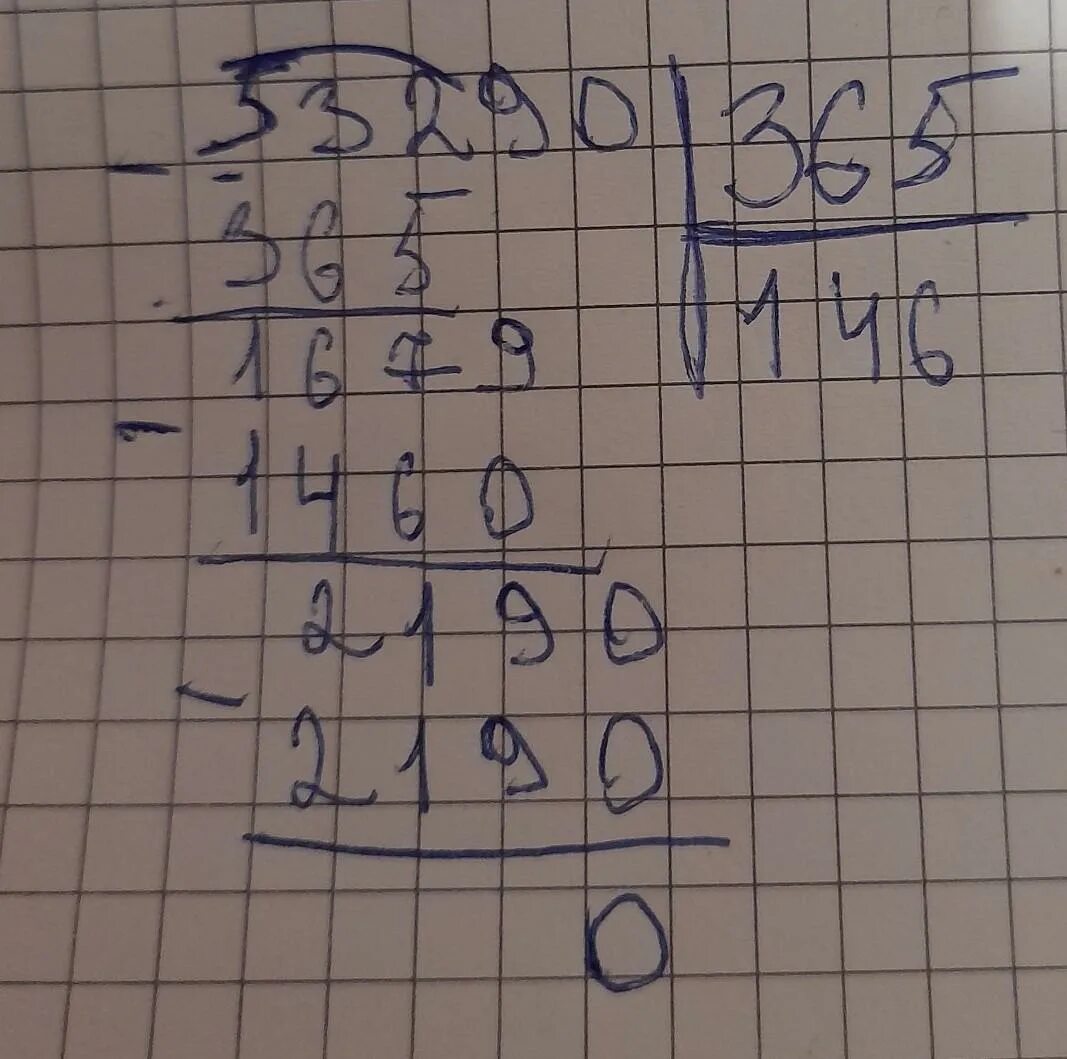 53290 365
- 365 146
1679
- 1460
2190
- 2190
0